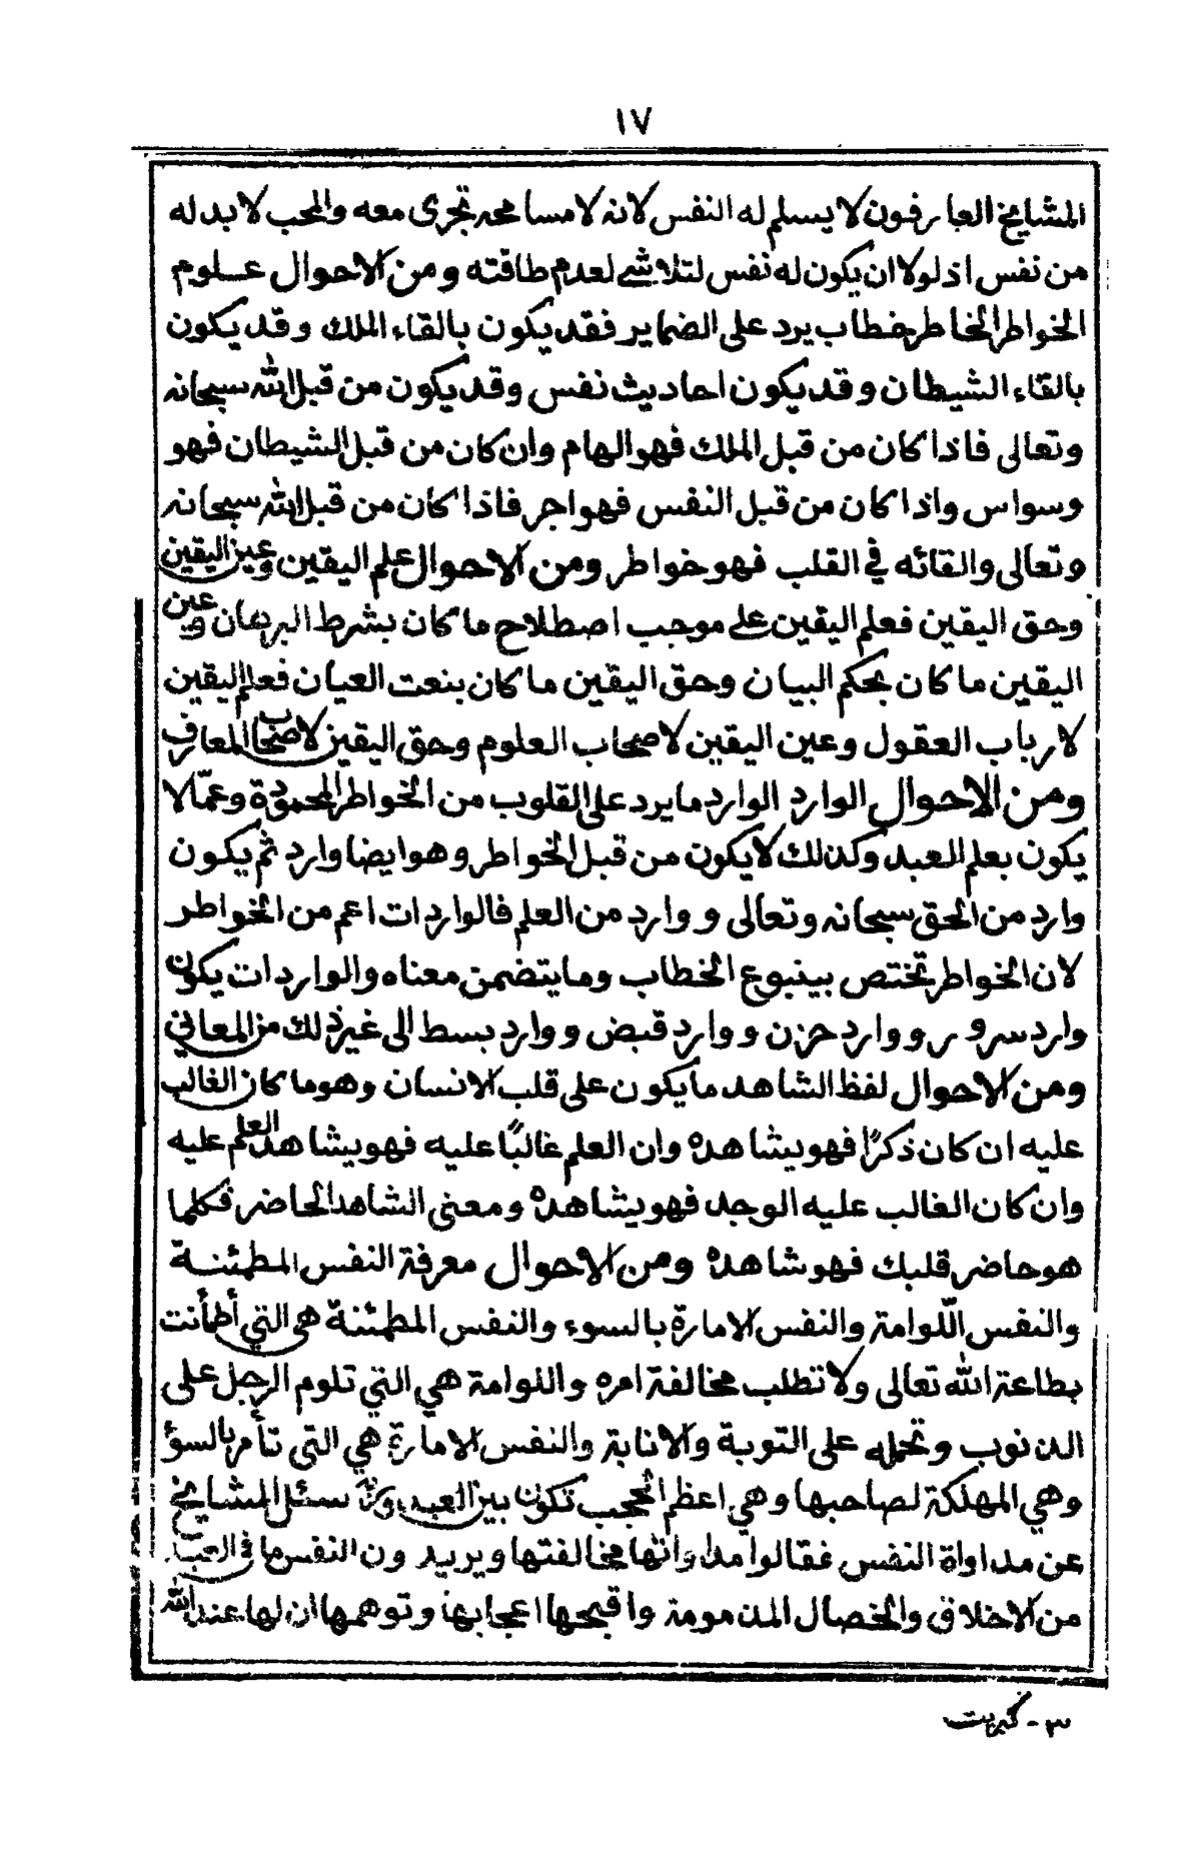 ١٧
المشايخ العارفون لا يسلم له النفس لانه لا مسامحه تجرى معه والمحب لا بد له
من نفس اذ لولا ان يكون له نفس لتلاشى لعدم طاقته ومن الاحوال علوم
الخواطر الخاطر خطاب يرد على الضماير فقد يكون بالقاء الملك وقد يكون
بالقاء الشيطان وقد يكون احاديث نفس وقد يكون من قبل الله سبحانه
وتعالى فاذا كان من قبل الملك فهو الهام وان كان من قبل الشيطان فهو
وسواس واذا كان من قبل النفس فهواجر فاذا كان من قبل الله سبحانه
وتعالى والقائه في القلب فهو خواطر ومن الاحوال علم اليقين وعين اليقين
وحق اليقين فعلم اليقين على موجب اصطلاح ما كان بشرط البرهان وعين
اليقين ما كان بحكم البيان وحق اليقين ما كان بنعت العيان فعلم اليقين
لارباب العقول وعين اليقين لاصحاب العلوم وحق اليقين لاصحاب المعارف
ومن الاحوال الوارد الوارد ما يرد على القلوب من الخواطر المحمودة وعمّا لا
يكون بعلم العبد وكذلك لا يكون من قبل الخواطر وهو ايضا وارد ثم يكون
وارد من الحق سبحانه وتعالى و وارد من العلم فالواردات اعم من الخواطر
لان الخواطر تختص بينبوع الخطاب وما يتضمن معناه والواردات يكون
وارد سرور ووارد حزن ووارد قبض ووارد بسط الى غير ذلك من المعاني
ومن الاحوال لفظ الشاهد ما يكون على قلب الانسان وهو ما كان الغالب
عليه ان كان ذكرًا فهو يشاهده وان العلم غالبًا عليه فهو يشاهد العلم عليه
وان كان الغالب عليه الوجد فهو يشاهده ومعنى الشاهد الحاضر فكلما
هو حاضر قلبك فهو شاهده ومن الاحوال معرفة النفس المطمئنة
والنفس اللّوامة والنفس الامارة بالسوء والنفس المطمئنة هى التي أطمأنت
بطاعة الله تعالى ولا تطلب مخالفة امره واللوامة هي التي تلوم الرجل على
الذنوب وتحمله على التوبة والانابة والنفس الامارة هي التى تأمر بالسؤ
وهي المهلكة لصاحبها وهي اعظم الحجب تكون بين العبد سئل المشايخ
عن مداواة النفس فقالوا مداواتها مخالفتها ويريدون النفس ما في العبد
من الاخلاق والخصال المذمومة واقبحها اعجابها وتوهمها ان لها عند الله
٣ - كبريت